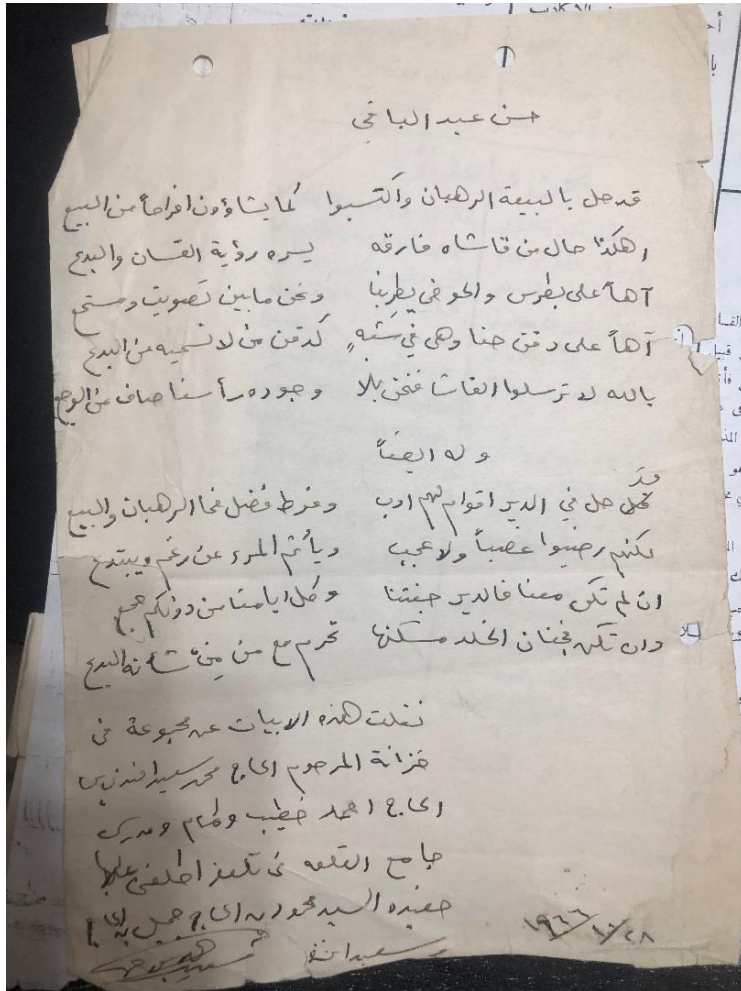 حسن عبد الباقي
قد حل بالبيعة الرهبان واكتسبوا كما يشاؤون افراحاً من البيع
اهكذا حال من قاشاه فارقه يسره رؤية القسان والبدع
آهاً على بطرس والحوفي يطربنا ونحن ما بين تصويت ومستمع
آهاً على دقن حنا وهي في شبهٍ كدقن من لا نسميه من البدع
بالله لا ترسلوا القاشا فنحن بلا وجوده رأسنا صاف من الوجع
وله ايضاً
قد حل في الدير اقوام لهم ادب وفرط فضل فما الرهبان والبيع
لكنهم رضيوا غصباً ولا عجب ويأثم المرء عن رغم ويبتدع
ان لم تكن معنا فالدير جنتنا وكل ايامنا من دونكم جمع
وان تكن بجنان الخلد مسكنها تحرم مع من شأنه البدع
نقلت هذه الابيات عن مجموعة في
خزانة المرحوم الحاج محمد سعيد افندي بن
الحاج احمد خطيب وامام ومدرس
جامع القلعه في تلعفر اطلعني عليها
حفيده السيد محمود بن الحاج جميل بن الحاج
سعيد
١٩٦٦/١٠/٢٨